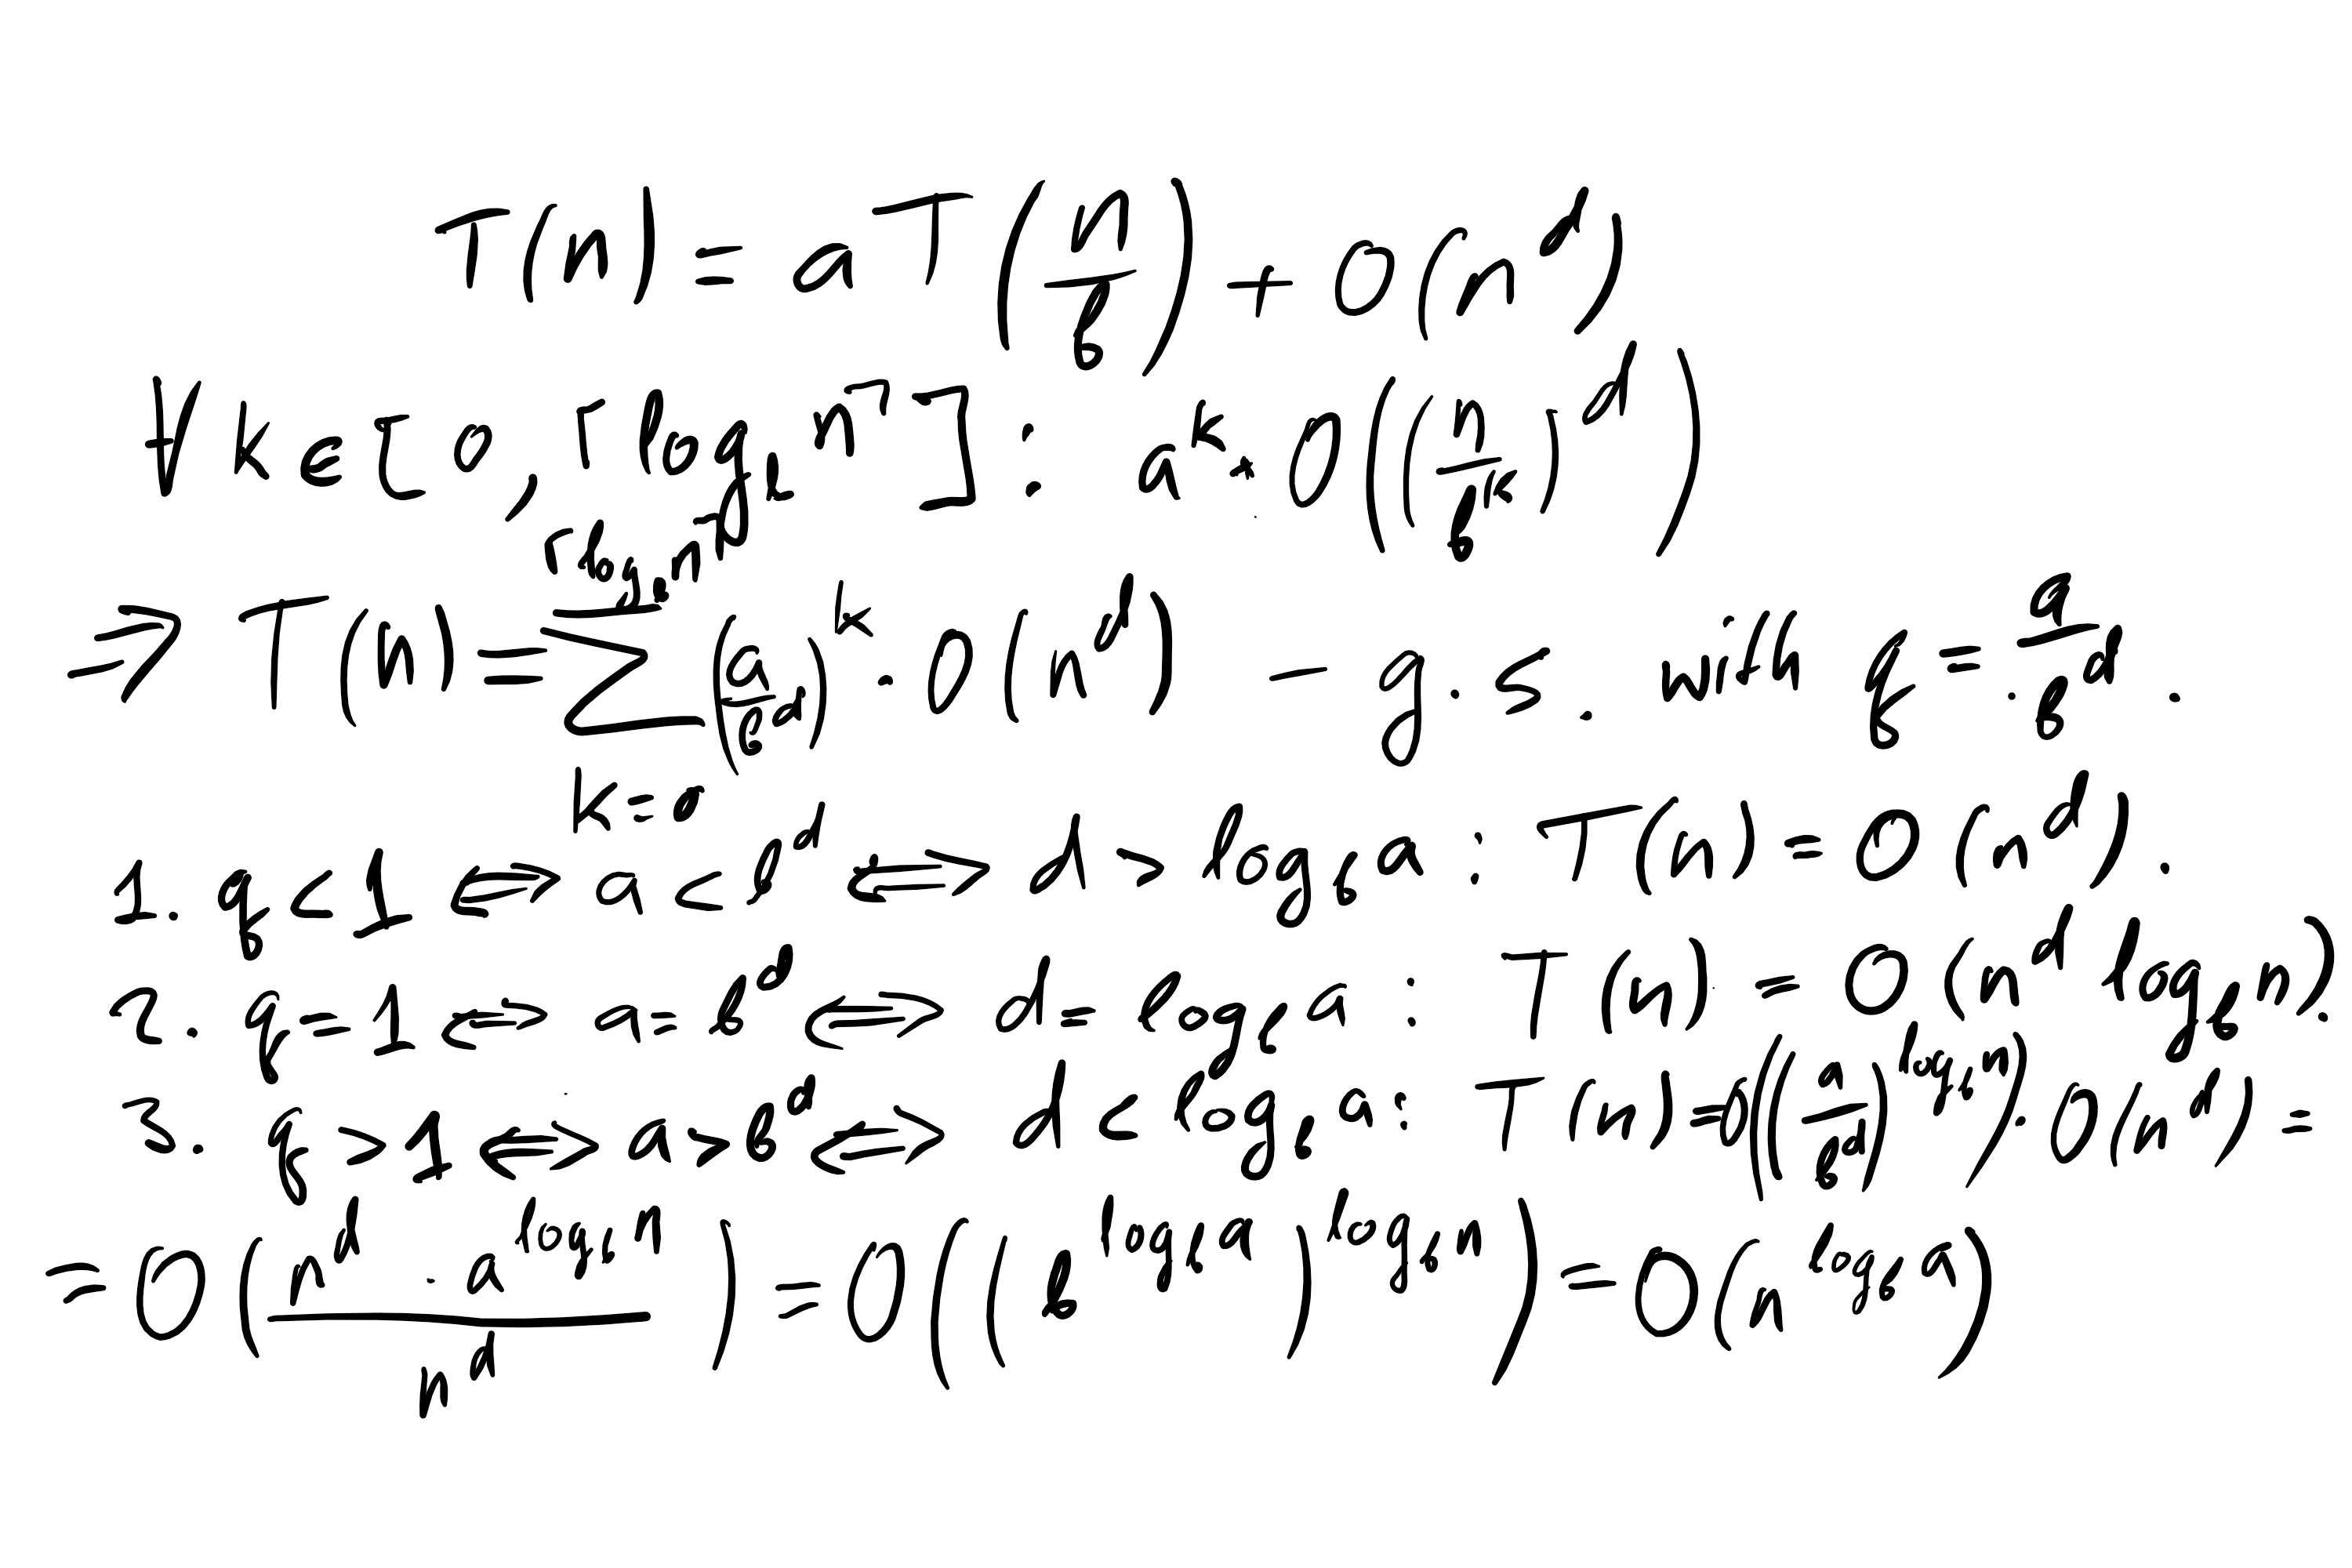 T(n) = aT(n/b) + O(n^d)
∀ k ∈ [0, ⌈log_b n⌉] : a^k · O((n/b^k)^d)
⇒ T(n) = ∑_{k=0}^{⌈log_b n⌉} (a/b^d)^k · O(n^d) – g.s. with q = a/b^d.
1. q < 1 ⇔ a < b^d ⇔ d > log_b a : T(n) = O(n^d).
2. q = 1 ⇔ a = b^d ⇔ d = log_b a : T(n) = O(n^d log_b n).
3. q > 1 ⇔ a > b^d ⇔ d < log_b a : T(n) = O((a/b^d)^{log_b n}) · O(n^d) =
= O((n^d · a^{log_b n})/n^d) = O((b^{log_b a})^{log_b n}) = O(n^{log_b a})